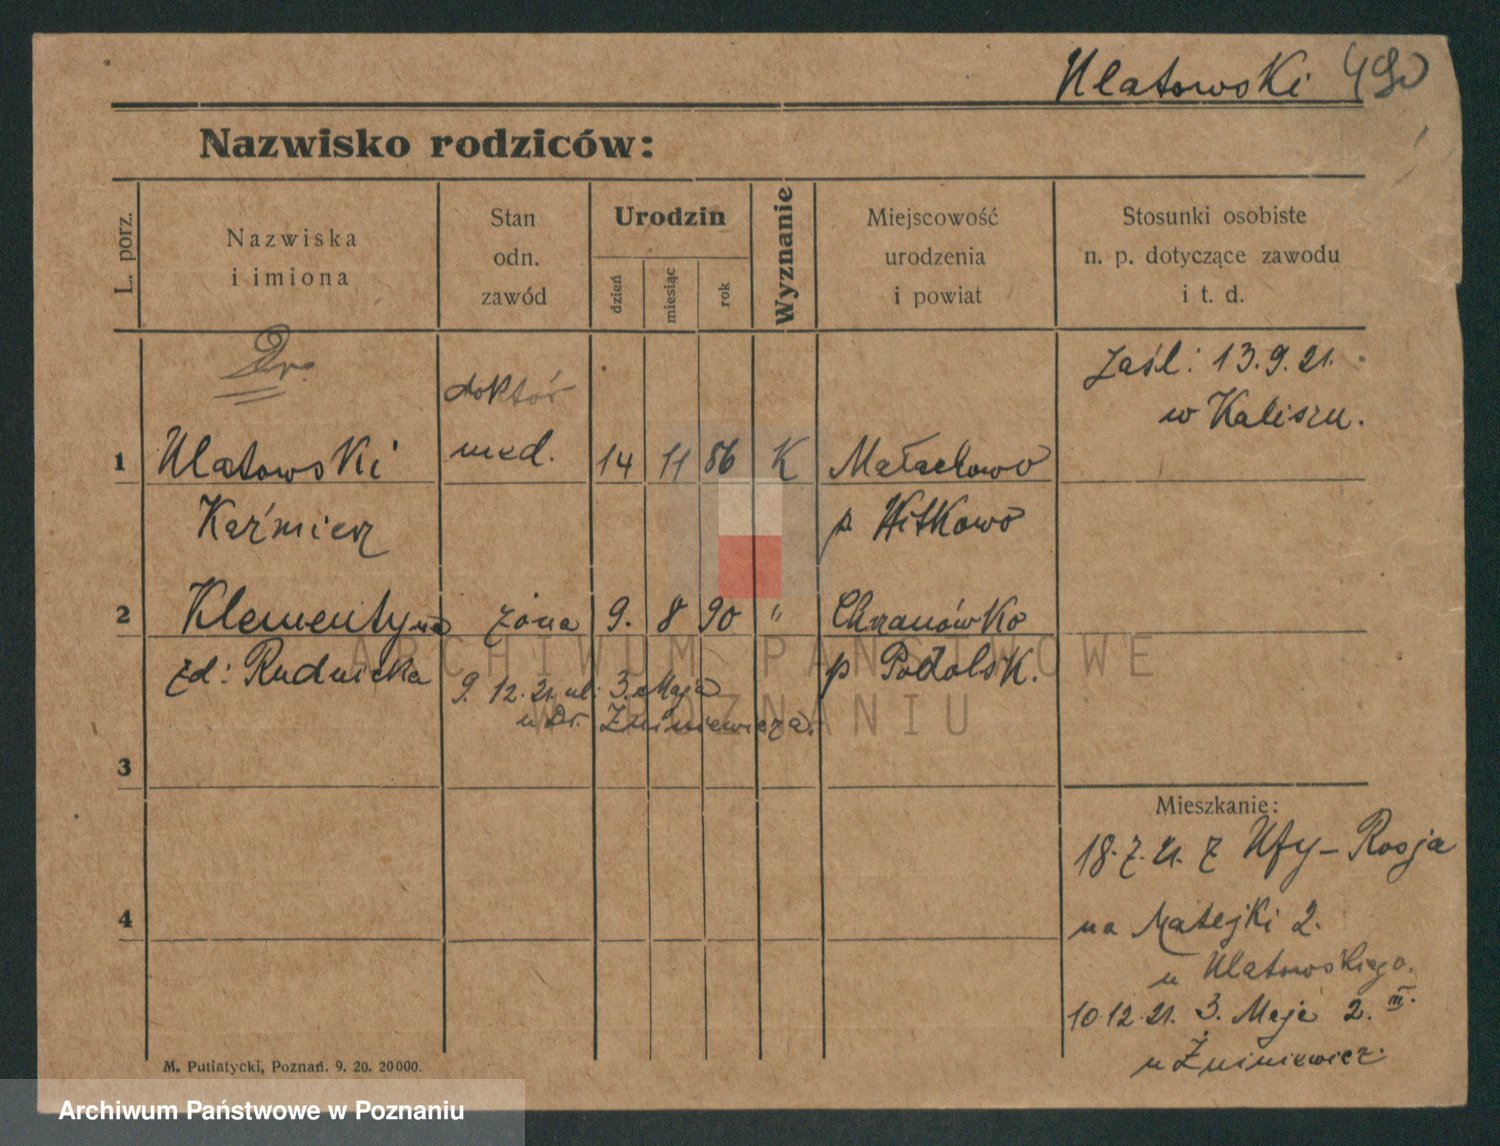 Ulatowski 490
Nazwisko rodziców:
L. porz.
Nazwiska
i imiona
Stan
odn.
zawód
Urodzin
dzień
miesiąc
rok
Wyznanie
Miejscowość
urodzenia
i powiat
Stosunki osobiste
n. p. dotyczące zawodu
i t. d.
Dr.
doktór
zaśl: 13.9.21.
w Kaliszu.
1 Ulatowski med. 14 11 86 K Małachowo
Kaźmierz p. Witkowo
2 Klementyna żona 9. 8 90 " Chranówko
zd: Rudnicka p Podolsk.
9. 12. 21. ul. 3. Maja
u Dr. Żniniewicza.
3
Mieszkanie:
18.7.21. z Ufy - Rosja
4
na Matejki 2.
u Ulatowskiego.
10.12.21. 3. Maja 2. III.
u Żniniewicz.
M. Putiatycki, Poznań. 9. 20. 20000.
ARCHIWUM PAŃSTWOWE
W POZNANIU
Archiwum Państwowe w Poznaniu